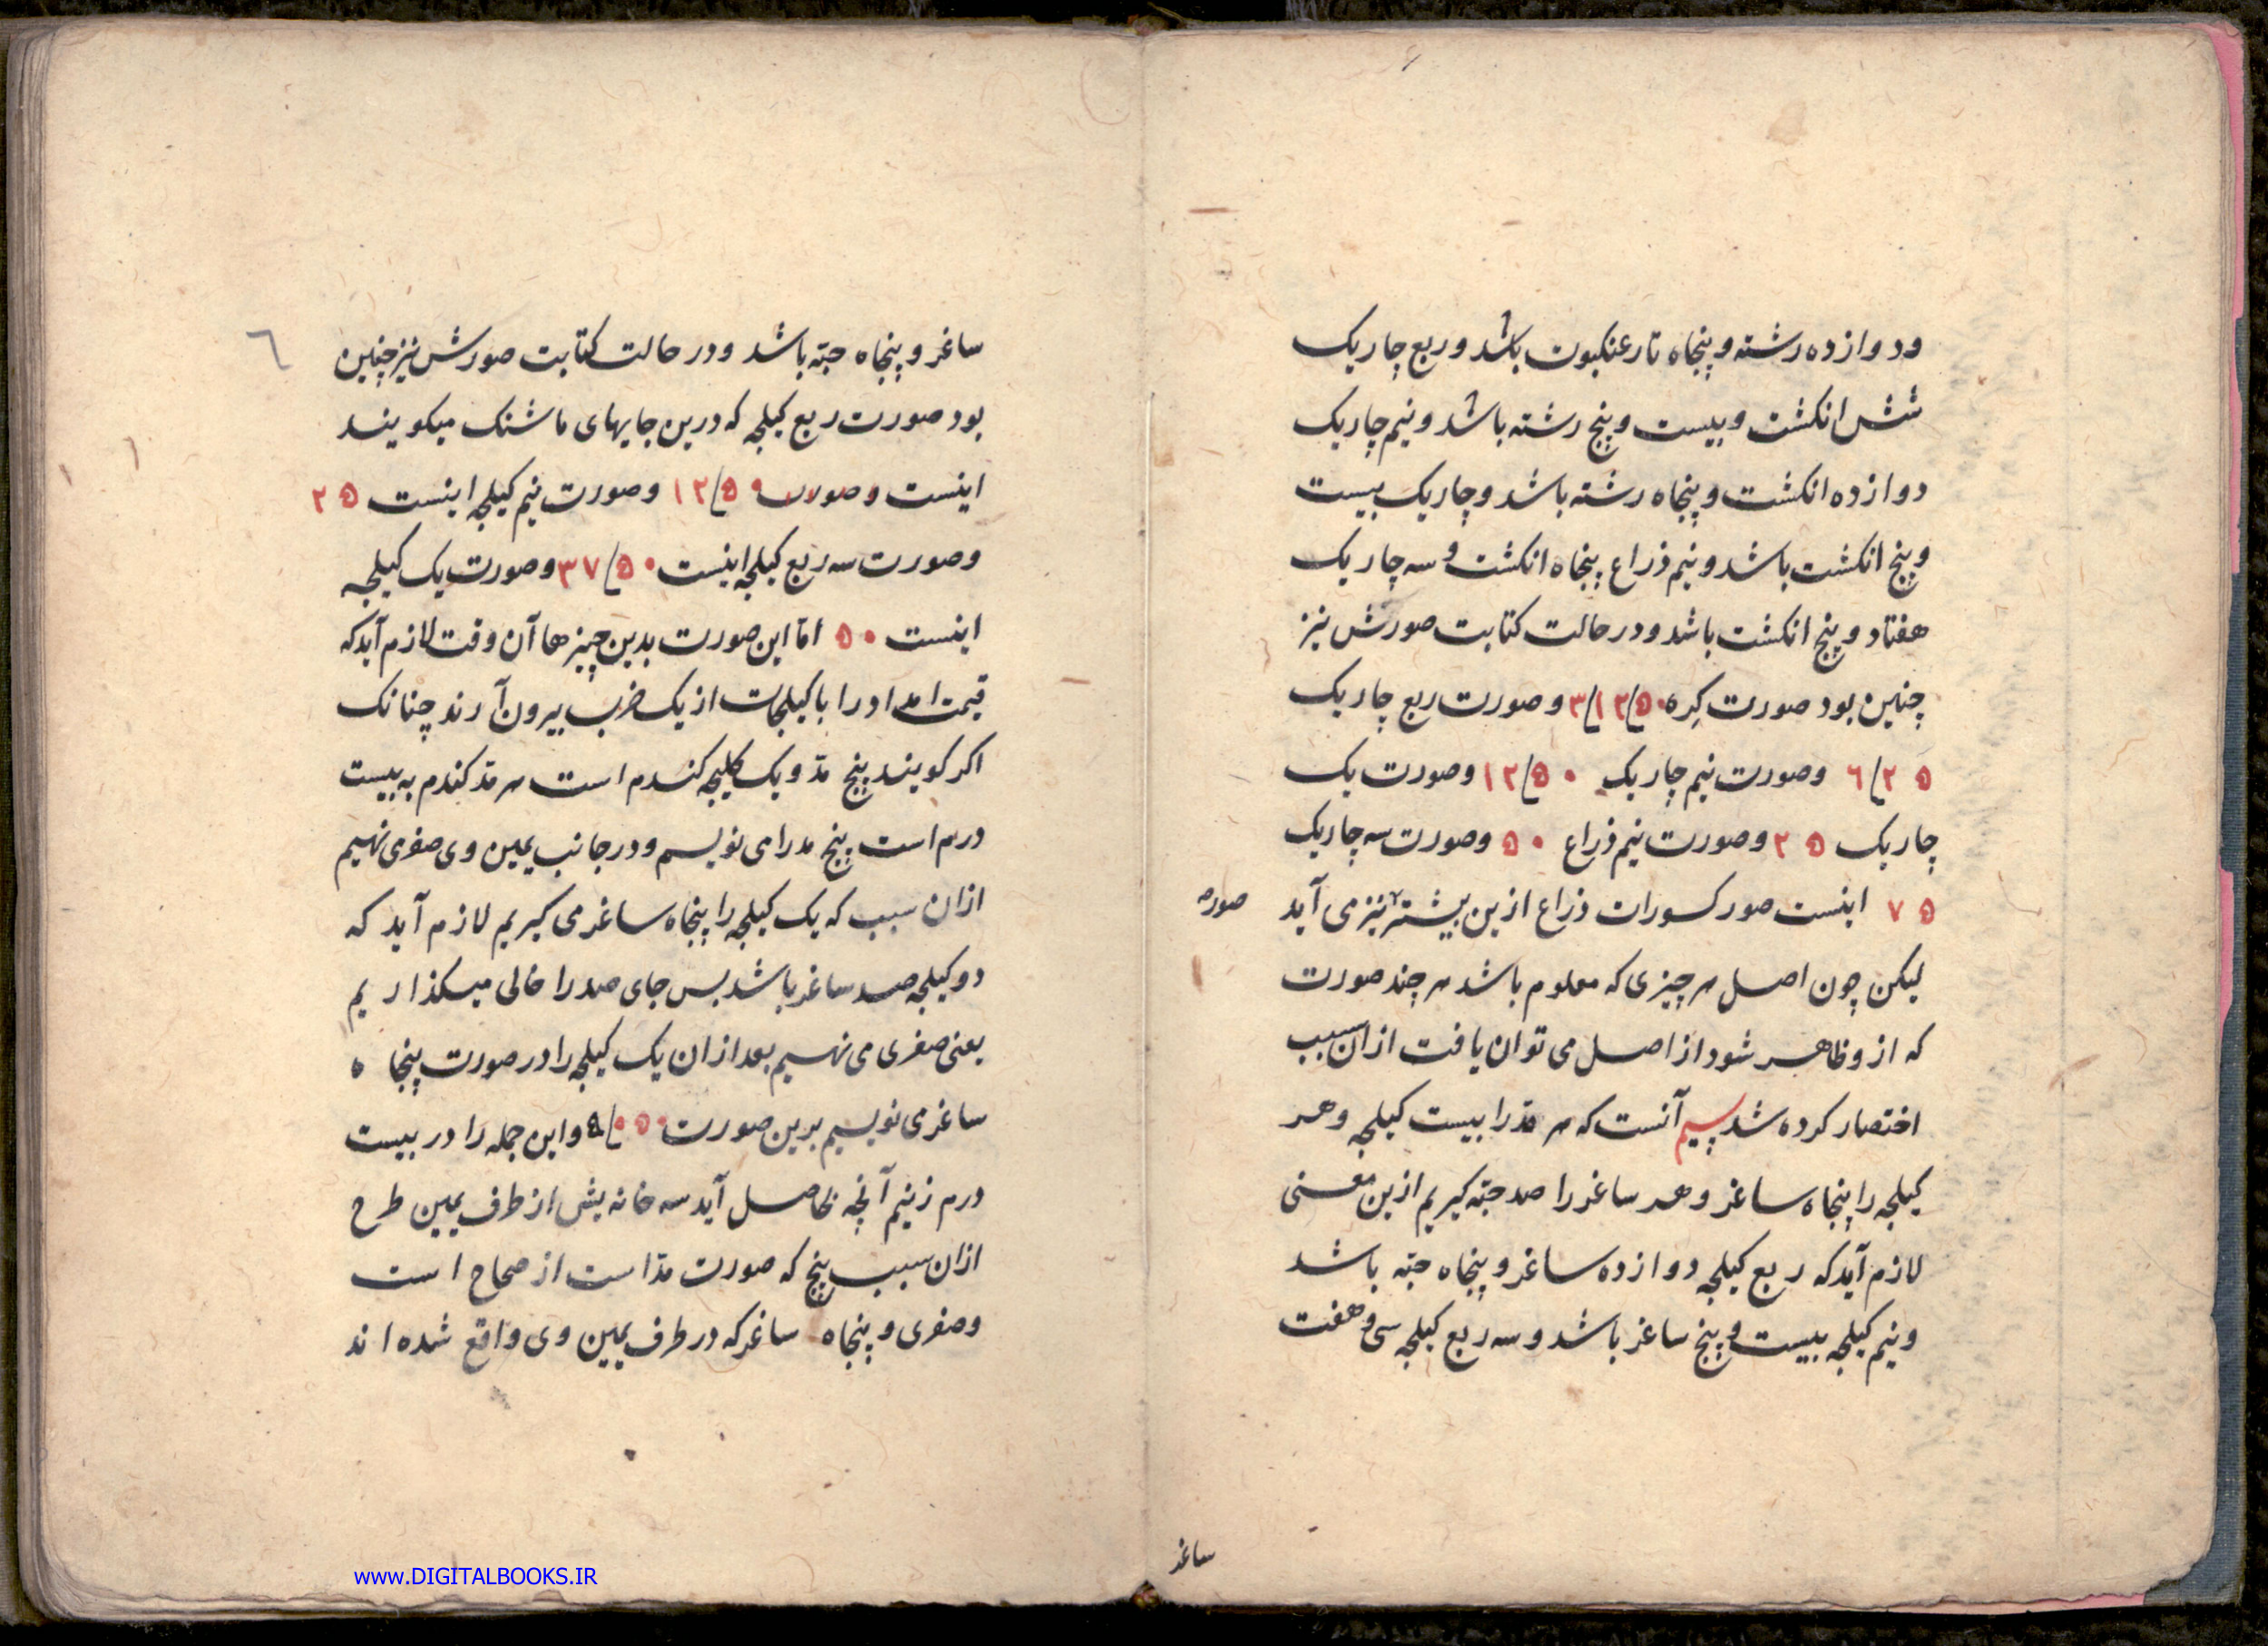 ودوازده رشته و پنجاه تار عنکبوت باشد و ربع چاریک
شش انکشت و بیست و پنج رشته باشد و نیم چاریک
دوازده انکشت و پنجاه رشته باشد و چاریک بیست
و پنج انکشت باشد و نیم ذراع پنجاه انکشت و سه چاریک
هفتاد و پنج انکشت باشد و در حالت کتابت صورتش نیز
چنین بود صورت کره ۳/۱۲/۵۰ و صورت ربع چاریک
۶/۲۵ و صورت نیم چاریک ۱۲/۵۰ و صورت یک
چاریک ۲۵ و صورت نیم ذراع ۵۰ و صورت سه چاریک
۷۵ اینست صور کسورات ذراع ازین بیشتر نیز می آید
صوره
لیکن چون اصل هر چیزی که معلوم باشد هر چند صورت
که ازو ظاهر شود از اصل می توان یافت ازان سبب
اختصار کرده شد سیم آنست که هر مد را بیست کیلجه و هر
کیلجه را پنجاه ساغر و هر ساغر را صد حبّه کیریم ازین معنی
لازم آید که ربع کیلجه دوازده ساغر و پنجاه حبّه باشد
و نیم کیلجه بیست و پنج ساغر باشد و سه ربع کیلجه سی و هفت
ساغر
۶
ساغر و پنجاه حبّه باشد و در حالت کتابت صورتش نیز چنین
بود صورت ربع کیلجه که درین جایهای ما شنک میکویند
اینست ۱۲/۵۰ و صورت نیم کیلجه اینست ۲۵
و صورت سه ربع کیلجه اینست ۳۷/۵۰ و صورت یک کیلجه
اینست ۵۰ امّا این صورت بدین چیزها آن وقت لازم آید که
قیمت امداد را با کیلجات از یک ضرب بیرون آرند چنانک
اکر کویند پنج مدّ و یک کیلجه کندم است هر مدّ کندم به بیست
درم است پنج مد را می نویسم و در جانب یمین وی صفری نهیم
ازان سبب که یک کیلجه را پنجاه ساغر می کیریم لازم آید که
دو کیلجه صد ساغر باشد بس جای صد را خالی میکذاریم
یعنی صفری می نهیم بعد ازان یک کیلجه را در صورت پنجاه
ساغر می نویسیم برین صورت ۵/۰۵۰ و این جمله را در بیست
درم زنیم آنچه حاصل آید سه خانه بش از طرف یمین طرح
ازان سبب پنج که صورت مدّ است از صحاح است
و صفری و پنجاه ساغر که در طرف یمین وی واقع شده اند
www.DIGITALBOOKS.IR